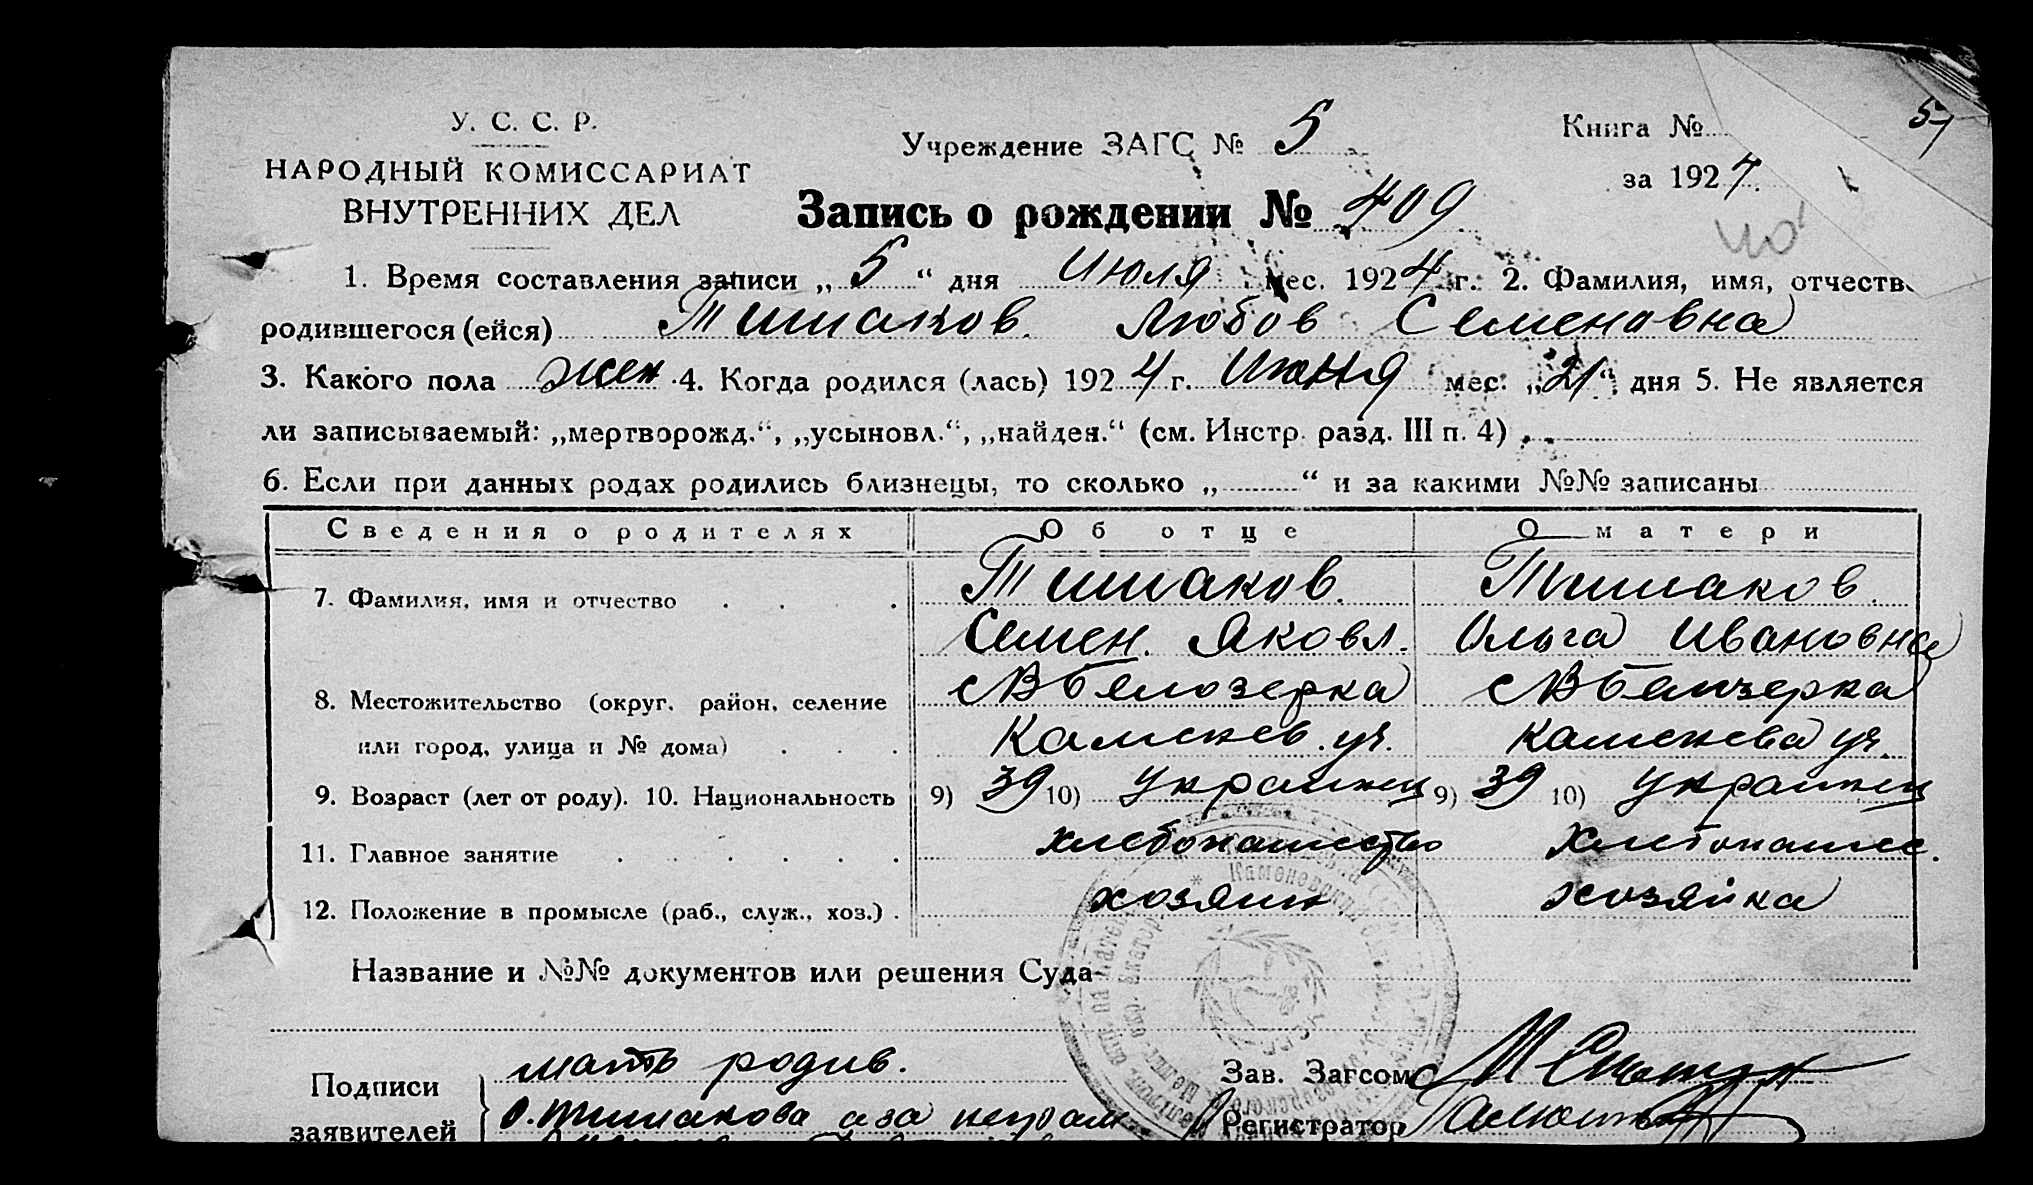 У. С. С. Р.
НАРОДНЫЙ КОМИССАРИАТ
ВНУТРЕННИХ ДЕЛ
Учреждение ЗАГС № 5
Книга №
57
за 1924
Запись о рождении № 409
1. Время составления записи „ 5 “ дня Июля мес. 1924 г. 2. Фамилия, имя, отчеств
родившегося (ейся) Тишаков. Любов Семеновна
3. Какого пола жен 4. Когда родился (лась) 1924 г. Июня мес. „21“ дня 5. Не является
ли записываемый: „мертворожд.“, „усыновл.“, „найден.“ (см. Инстр. разд. III п. 4)
6. Если при данных родах родились близнецы, то сколько „ “ и за какими №№ записаны
Сведения о родителях Об отце О матери
7. Фамилия, имя и отчество Тишаков. Тишаков.
Семен. Яковл. Ольга Ивановна
8. Местожительство (округ, район, селение сВБелозерка сВБелзерка
или город, улица и № дома) Каменев. уч. Каменева уч.
9. Возраст (лет от роду). 10. Национальность 9) 39 10) украинец 9) 39 10) украинец
11. Главное занятие хлебопашество хлебопашес.
12. Положение в промысле (раб., служ., хоз.) хозяин хозяйка
Название и №№ документов или решения Суда
Подписи мать родив. Зав. Загсом
заявителей О. Тишакова а за неграм Регистратор